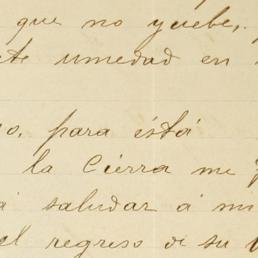 que no yuebe,
umedad en
para ésta
la Cierra me
saludar á mi
el regreso de su